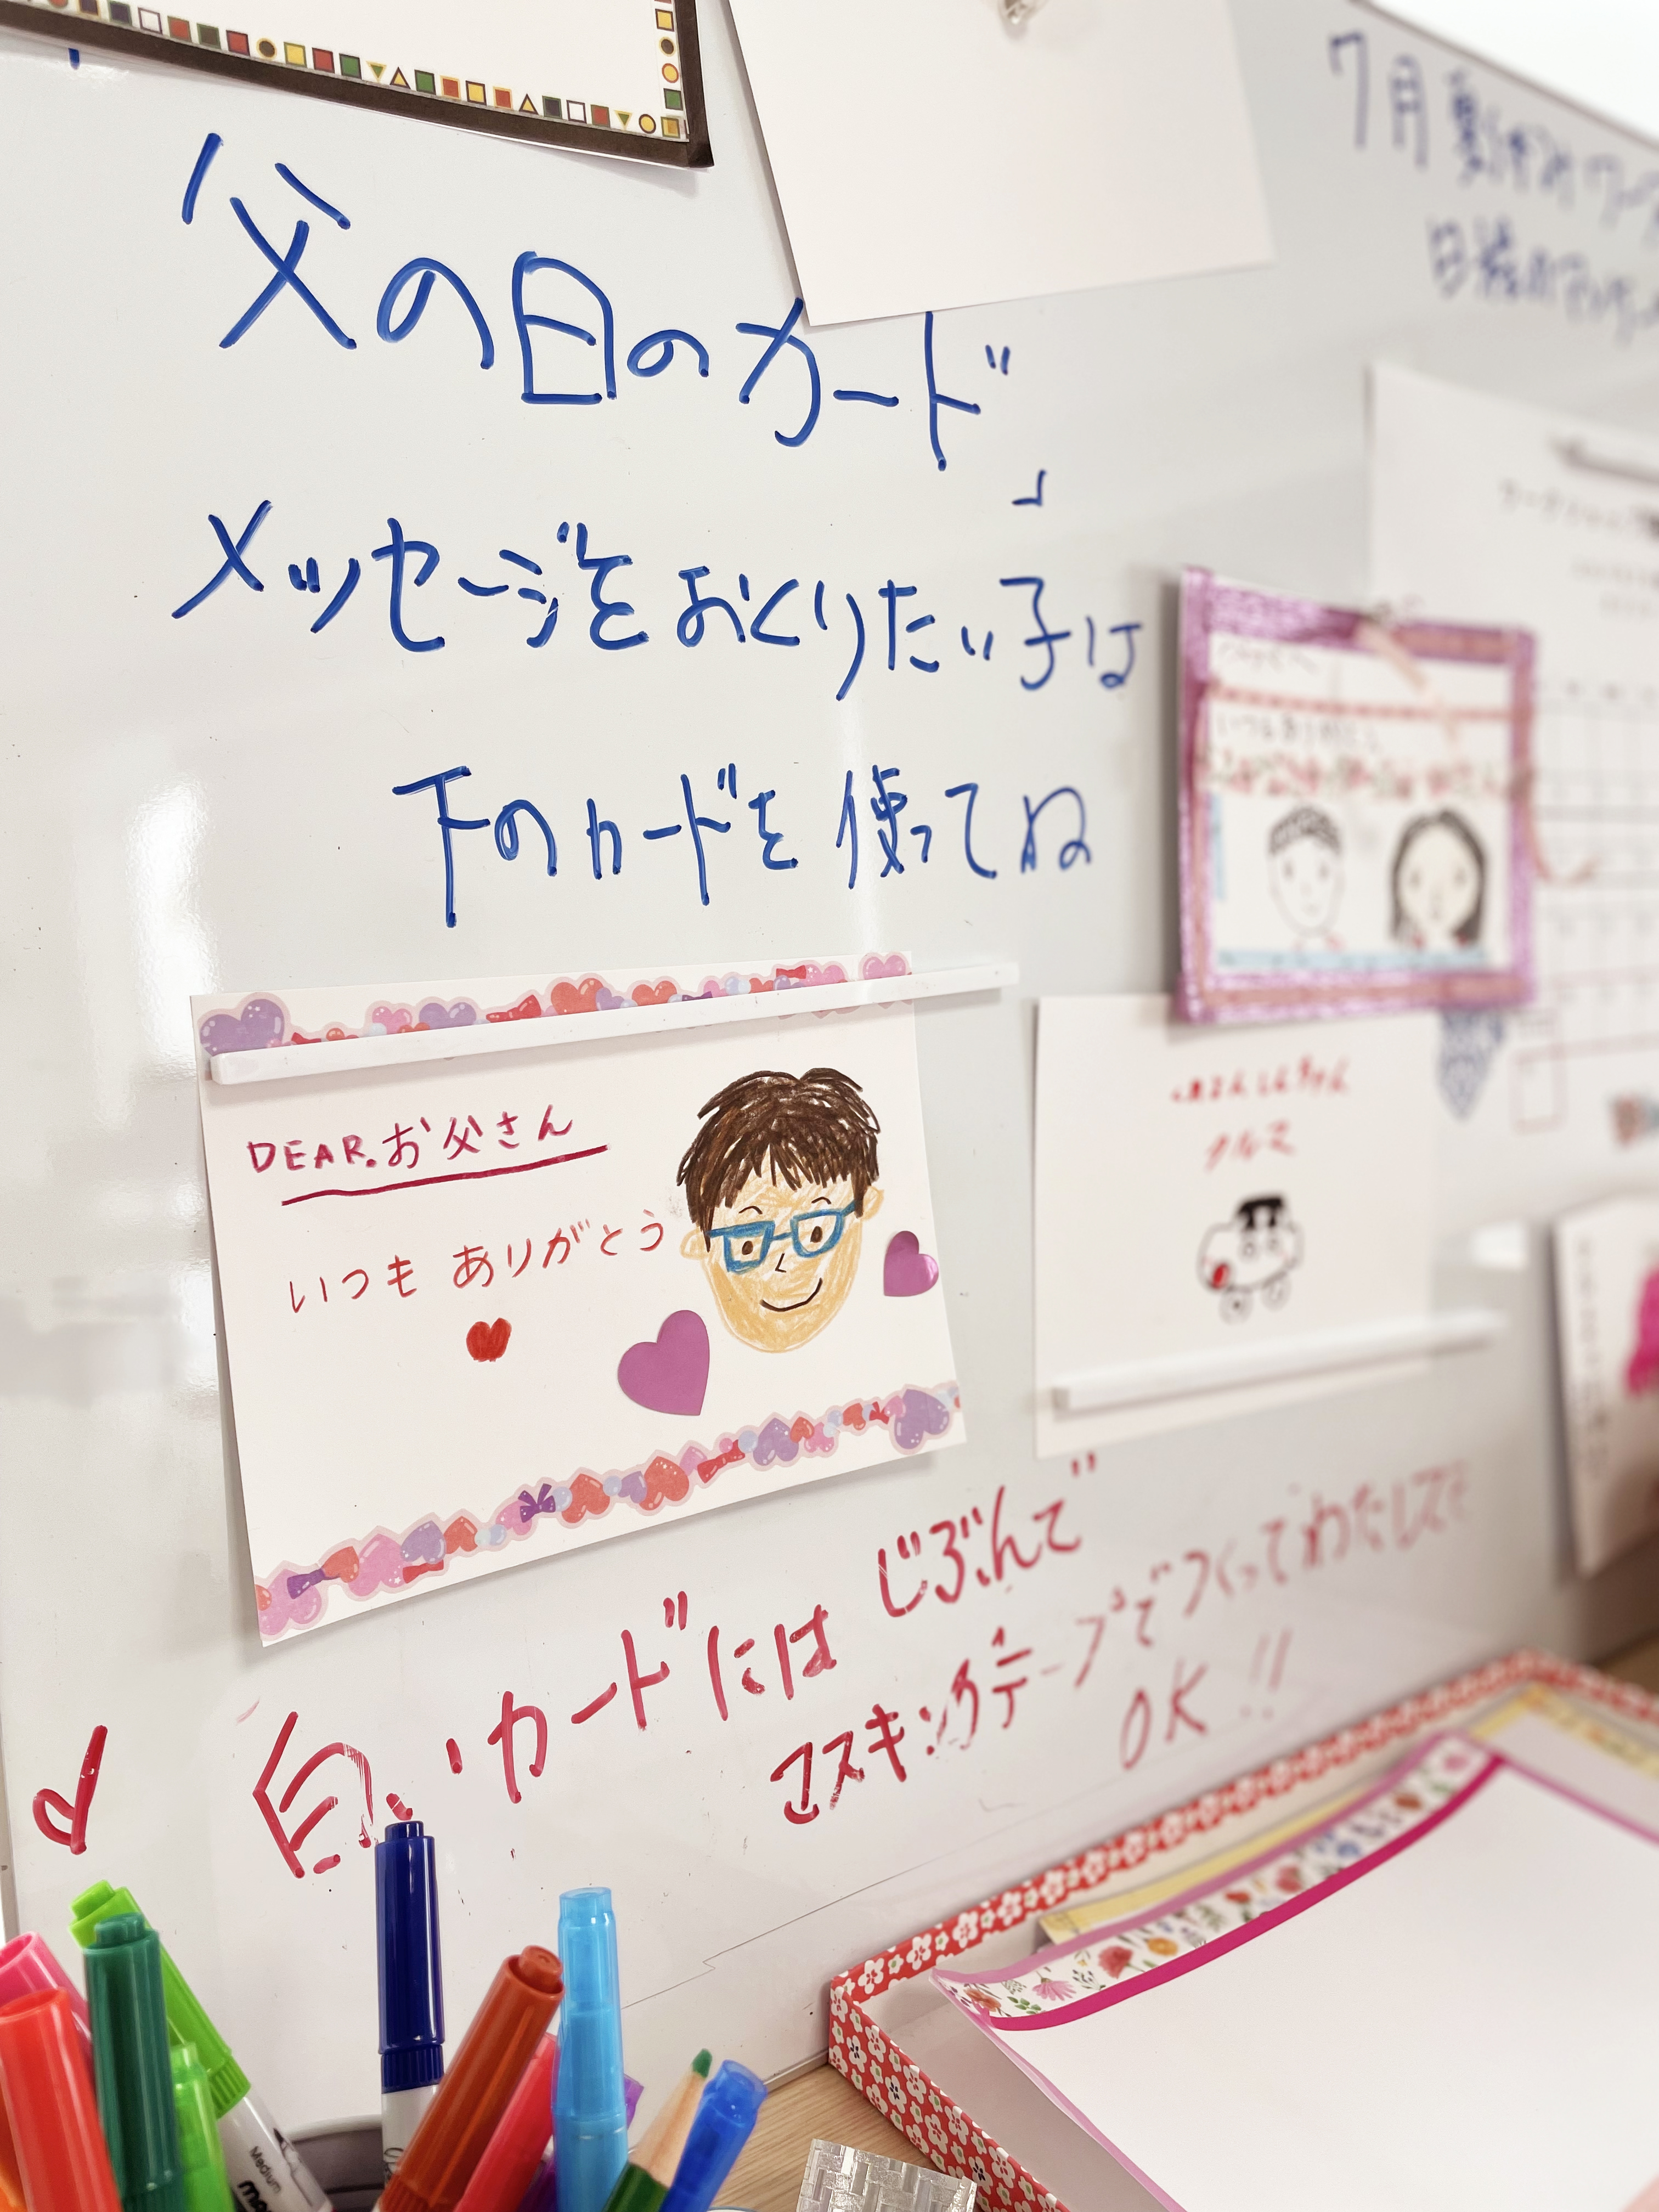 父の日のカード
メッセージをおくりたい子は
下のカードを使ってね
DEAR.お父さん
いつも ありがとう
くれよんしんちゃん
クルマ
いつもありがとう
白いカードには じぶんで
マスキングテープでつくってわたしても
OK!!
7月 夏休み
Medium